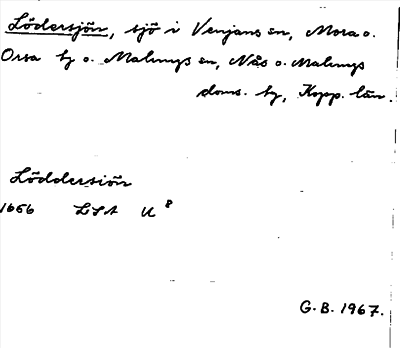 Lödersjön, sjö i Venjans sn, Mora o.
Orsa tg o. Malungs sn, Nås o. Malungs
doms. tg, Kopp. län.
Löddersiön
1656 LSA U 8
G.B. 1967.